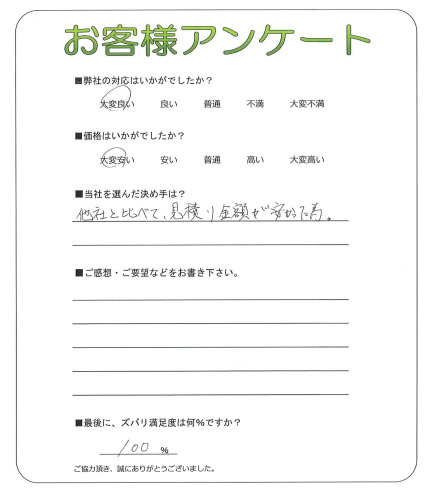 お客様アンケート
■弊社の対応はいかがでしたか?
大変良い 良い 普通 不満 大変不満
■価格はいかがでしたか?
大変安い 安い 普通 高い 大変高い
■当社を選んだ決め手は?
他社と比べて、見積り金額が安かった為。
■ご感想・ご要望などをお書き下さい。
■最後に、ズバリ満足度は何%ですか?
100 %
ご協力頂き、誠にありがとうございました。